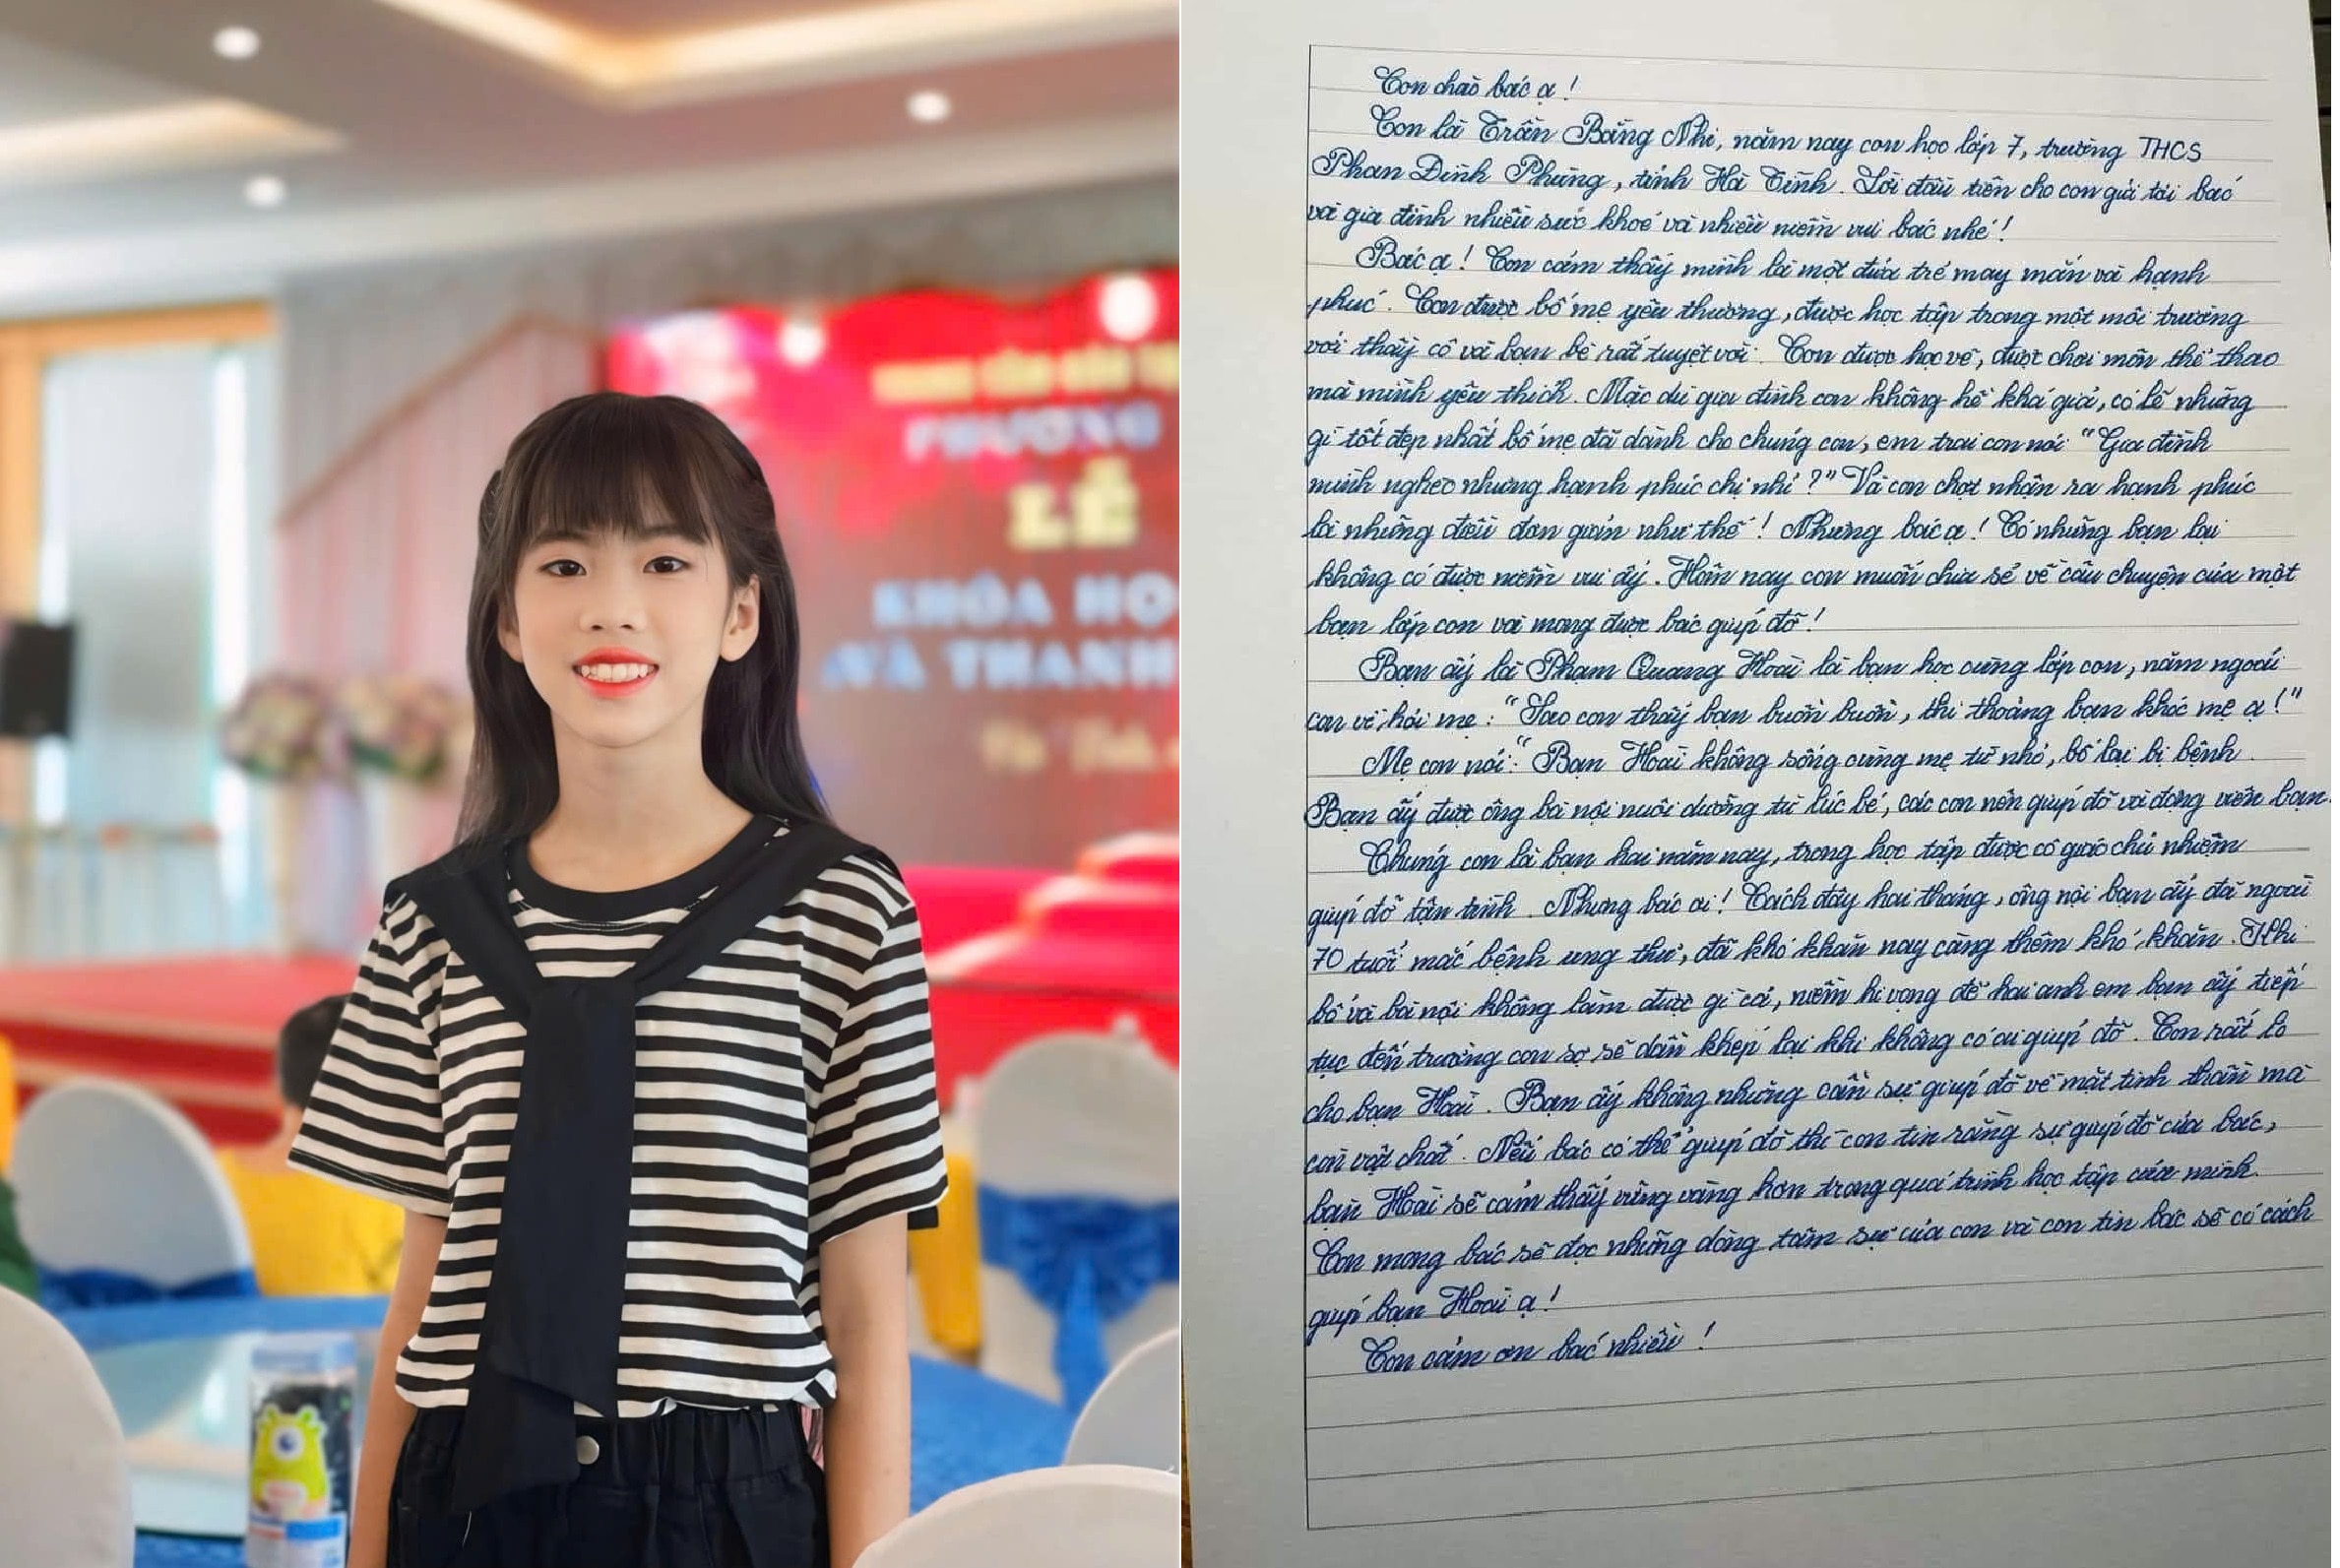 LỄ
KHÓA HỌ
VÀ THANH
Con chào bác ạ!
Con là Trần Băng Nhi, năm nay con học lớp 7, trường THCS
Phan Đình Phùng, tỉnh Hà Tĩnh. Lời đầu tiên cho con gửi tới bác
và gia đình nhiều sức khoẻ và nhiều niềm vui bác nhé!
Bác ạ! Con cảm thấy mình là một đứa trẻ may mắn và hạnh
phúc. Con được bố mẹ yêu thương, được học tập trong một môi trường
với thầy cô và bạn bè rất tuyệt vời. Con được học vẽ, được chơi môn thể thao
mà mình yêu thích. Mặc dù gia đình con không hề khá giả, có lẽ những
gì tốt đẹp nhất bố mẹ đã dành cho chúng con, em trai con nói "Gia đình
mình nghèo nhưng hạnh phúc chị nhỉ?" Và con chợt nhận ra hạnh phúc
là những điều đơn giản như thế! Nhưng bác ạ! Có những bạn lại
không có được niềm vui ấy. Hôm nay con muốn chia sẻ về câu chuyện của một
bạn lớp con và mong được bác giúp đỡ!
Bạn ấy là Phạm Quang Hoài là bạn học cùng lớp con, năm ngoái
con về hỏi mẹ: "Sao con thấy bạn buồn buồn, thi thoảng bạn khóc mẹ ạ!"
Mẹ con nói: "Bạn Hoài không sống cùng mẹ từ nhỏ, bố lại bị bệnh.
Bạn ấy được ông bà nội nuôi dưỡng từ lúc bé, các con nên giúp đỡ và động viên bạn.
Chúng con là bạn hai năm nay, trong học tập được cô giáo chủ nhiệm
giúp đỡ tận tình. Nhưng bác ơi! Cách đây hai tháng, ông nội bạn ấy đã ngoài
70 tuổi mắc bệnh ung thư, đã khó khăn nay càng thêm khó khăn. Khi
bố và bà nội không làm được gì cả, niềm hi vọng để hai anh em bạn ấy tiếp
tục đến trường con sợ sẽ dần khép lại khi không có ai giúp đỡ. Con rất lo
cho bạn Hoài. Bạn ấy không những cần sự giúp đỡ về mặt tinh thần mà
còn vật chất. Nếu bác có thể giúp đỡ thì con tin rằng sự giúp đỡ của bác,
bạn Hoài sẽ cảm thấy vững vàng hơn trong quá trình học tập của mình.
Con mong bác sẽ đọc những dòng tâm sự của con và con tin bác sẽ có cách
giúp bạn Hoài ạ!
Con cảm ơn bác nhiều!